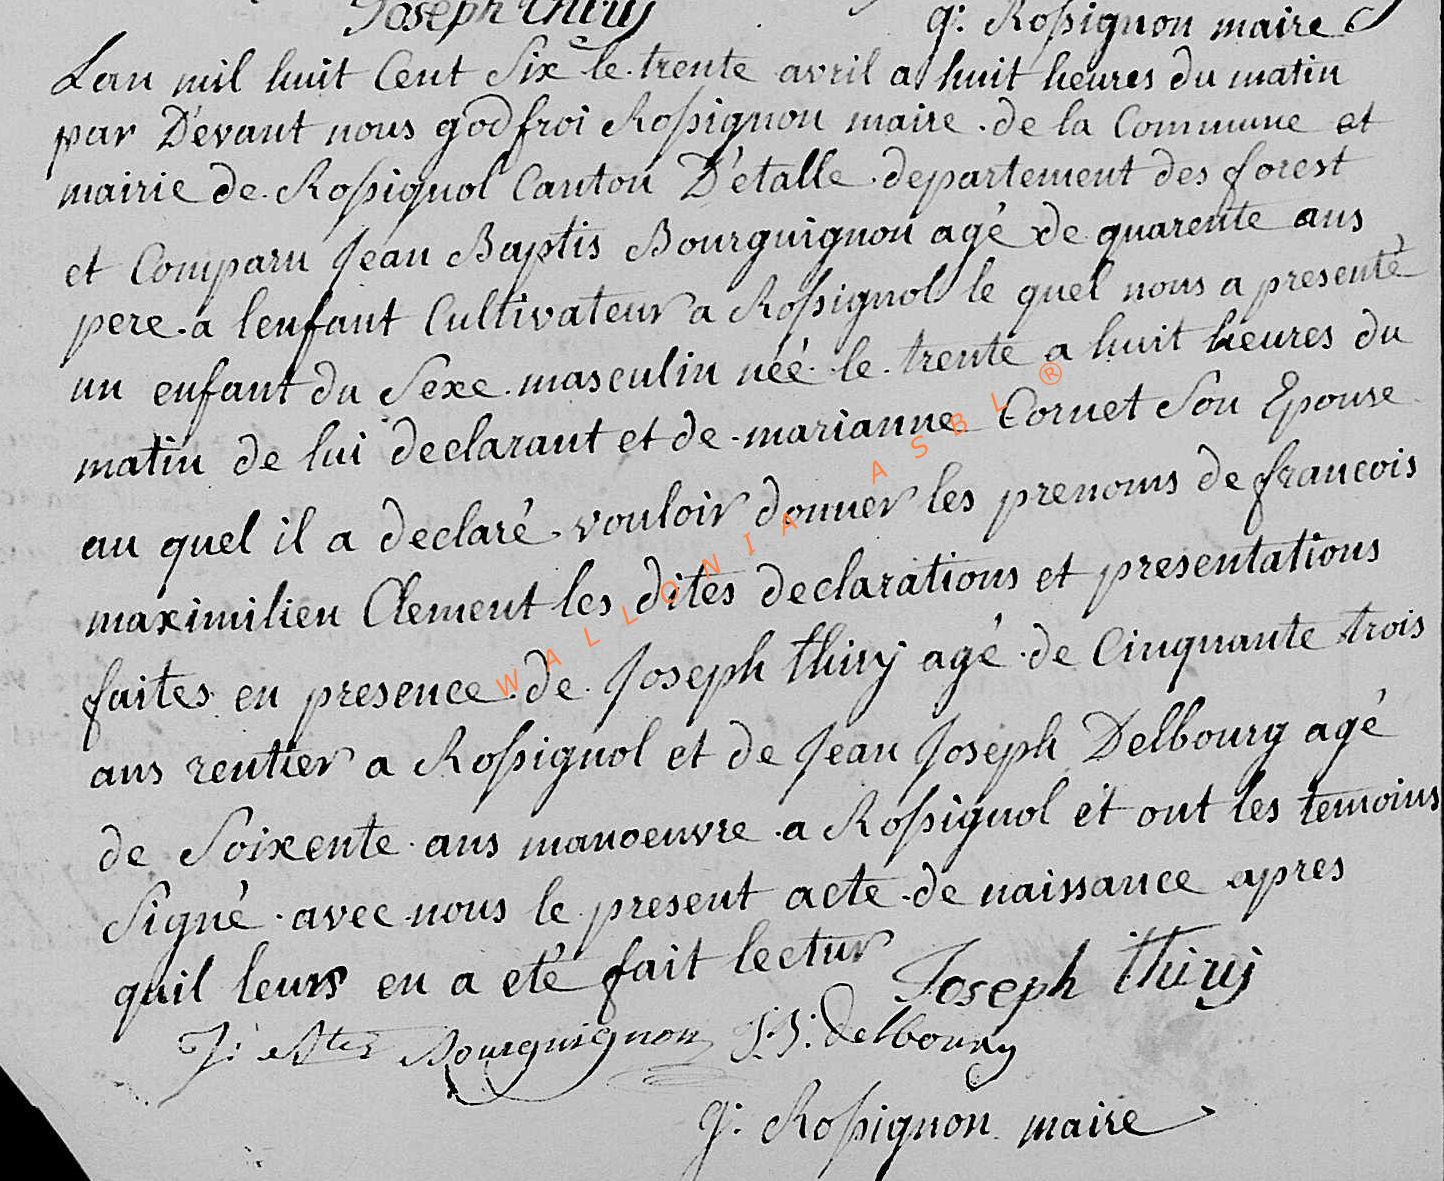 Joseph thirij
g: Rossignon maire
Lan mil huit Cent Six le trente avril a huit heures du matin
par Devant nous godfroi Rossignon maire de la Commune et
mairie de Rossignol Canton D'étalle departement des forest
et Comparu Jean Baptis Bourguignon agé de quarente ans
pere a lenfant Cultivateur a Rossignol le quel nous a presenté
un enfant du Sexe masculin néé le trente a huit heures du
matin de lui declarant et de marianne Cornet Son Epouse
au quel il a declaré vouloir donner les prenoms de francois
maximilien Clement les dites declarations et presentations
faites en presence de Joseph thirij agé de Cinquante trois
ans rentier a Rossignol et de Jean Joseph Delbourg agé
de Soixente ans manoeuvre a Rossignol et ont les temoins
Signé avec nous le present acte de naissance apres
quil leurs en a eté fait lectur
Joseph thirij
J: Btes Bourguignon J:J: delbourg
g: Rossignon maire
WALLONIA ASBL ®